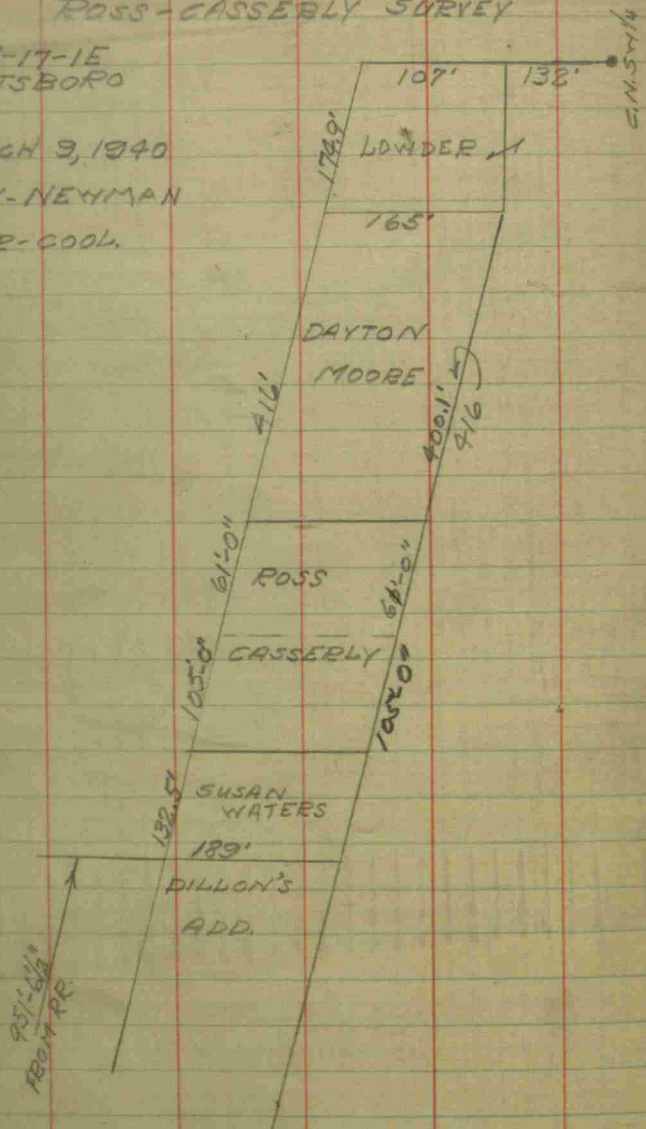 ROSS-CASSERLY SURVEY
-17-1E
TSBORO
CH 9, 1940
-NEWMAN
-COOL.
C.N.SW1/4
107'
132'
174.9'
LOWDER
165'
DAYTON
MOORE
416'
400.1'
416
61'-0"
ROSS
61'-0"
CASSERLY
105'-0"
105'-0"
132.5'
SUSAN
WATERS
189'
DILLON'S
ADD.
FROM RR.